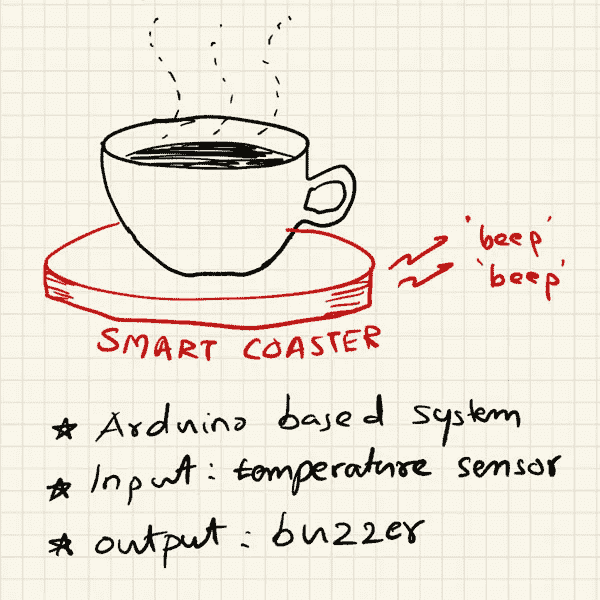 'beep'
'beep'
SMART COASTER
☆ Arduino based system
☆ Input: temperature sensor
☆ output: buzzer